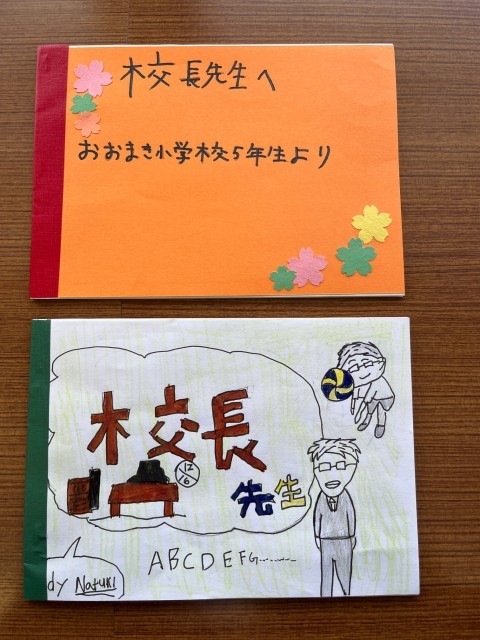 校長先生へ
おおまき小学校5年生より
校長
先生
12/6
ABCDEFG………
dy Natuki